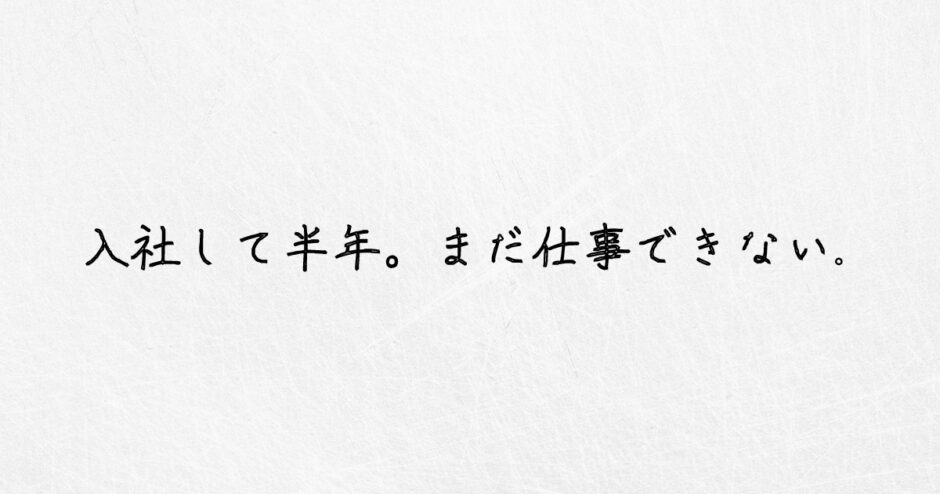 入社して半年。まだ仕事できない。